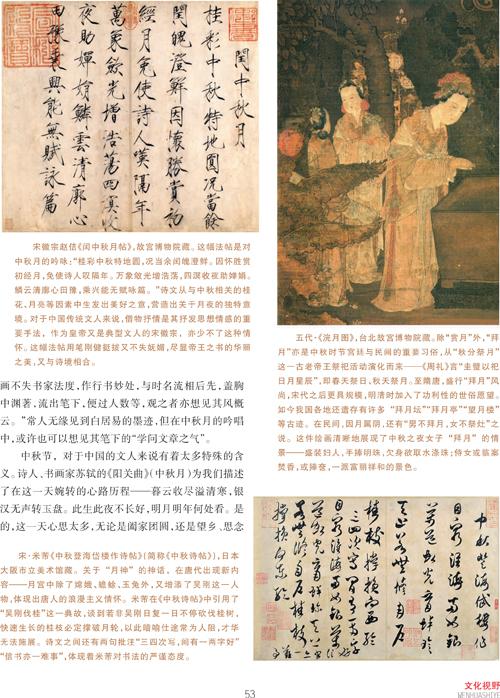 閏中秋月
桂彩中秋特地圓況當餘
閏魄澄鮮因懷勝賞初
經月免使詩人嘆隔年
萬象斂光增浩蕩四溟收
夜助嬋娟鱗雲清廓心
田豫乘興能無賦詠篇
宋徽宗赵佶《闰中秋月帖》,故宫博物院藏。这幅法帖是对
中秋月的吟咏:“桂彩中秋特地圆,况当余闰魄澄鲜。因怀胜赏
初经月,免使诗人叹隔年。万象敛光增浩荡,四溟收夜助婵娟。
鳞云清廓心田豫,乘兴能无赋咏篇。”诗文从与中秋相关的桂
花,月亮等因素中生发出美好之意,营造出关于月夜的独特意
境。对于中国传统文人来说,借物抒情是其抒发思想情感的重
要手法,作为皇帝又是典型文人的宋徽宗,亦少不了这种情
怀。这幅法帖用笔刚健挺拔又不失妩媚,尽显帝王之书的华丽
之美,又与诗境相合。
画不失书家法度,作行书妙处,与时名流相后先,盖胸
中渊著,流出笔下,便过人数等,观之者亦想见其风概
云。”常人无缘见到白居易的墨迹,但在中秋月的吟唱
中,或许也可以想见其笔下的“学问文章之气”。
中秋节,对于中国的文人来说有着太多特殊的含
义。诗人、书画家苏轼的《阳关曲》(中秋月)为我们描述
了在这一天婉转的心路历程——暮云收尽溢清寒,银
汉无声转玉盘。此生此夜不长好,明月明年何处看。是
的,这一天心思太多,无论是阖家团圆,还是望乡、思念
宋·米芾《中秋登海岱楼作诗帖》(简称《中秋诗帖》),日本
大阪市立美术馆藏。关于“月神”的神话,在唐代出现新内
容——月宫中除了嫦娥、蟾蜍、玉兔外,又增添了吴刚这一人
物,体现出唐人的浪漫主义情怀。米芾在《中秋诗帖》中引用了
“吴刚伐桂”这一典故,谈到若非吴刚日复一日不停砍伐桂树,
快速生长的桂枝必定撑破月轮,以此暗喻仕途常为人阻,才华
无法施展。诗文之间还有两句批注“三四次写,间有一两字好”
“信书亦一难事”,体现着米芾对书法的严谨态度。
五代·《浣月图》,台北故宫博物院藏。除“赏月”外,“拜
月”亦是中秋时节宫廷与民间的重要习俗,从“秋分祭月”
这一古老帝王祭祀活动演化而来——《周礼》言“圭璧以祀
日月星辰”,即春天祭日,秋天祭月。至隋唐,盛行“拜月”风
尚,宋代之后更具规模,明清时加入了功利性的世俗愿望。
如今我国各地还遗存有许多“拜月坛”“拜月亭”“望月楼”
等古迹。在民间,因月属阴,还有“男不拜月,女不祭灶”之
说。这件绘画清晰地展现了中秋之夜女子“拜月”的情
景——盛装妇人,手捧明珠,欠身欲取水涤珠;侍女或临案
焚香,或捧奁,一派富丽祥和的景色。
中秋登海岱樓作
目窮淮海兩如銀
萬道虹光育蚌珍
天上若無修月戶
桂枝撐損向西輪
53
文化视野
WENHUASHIYE